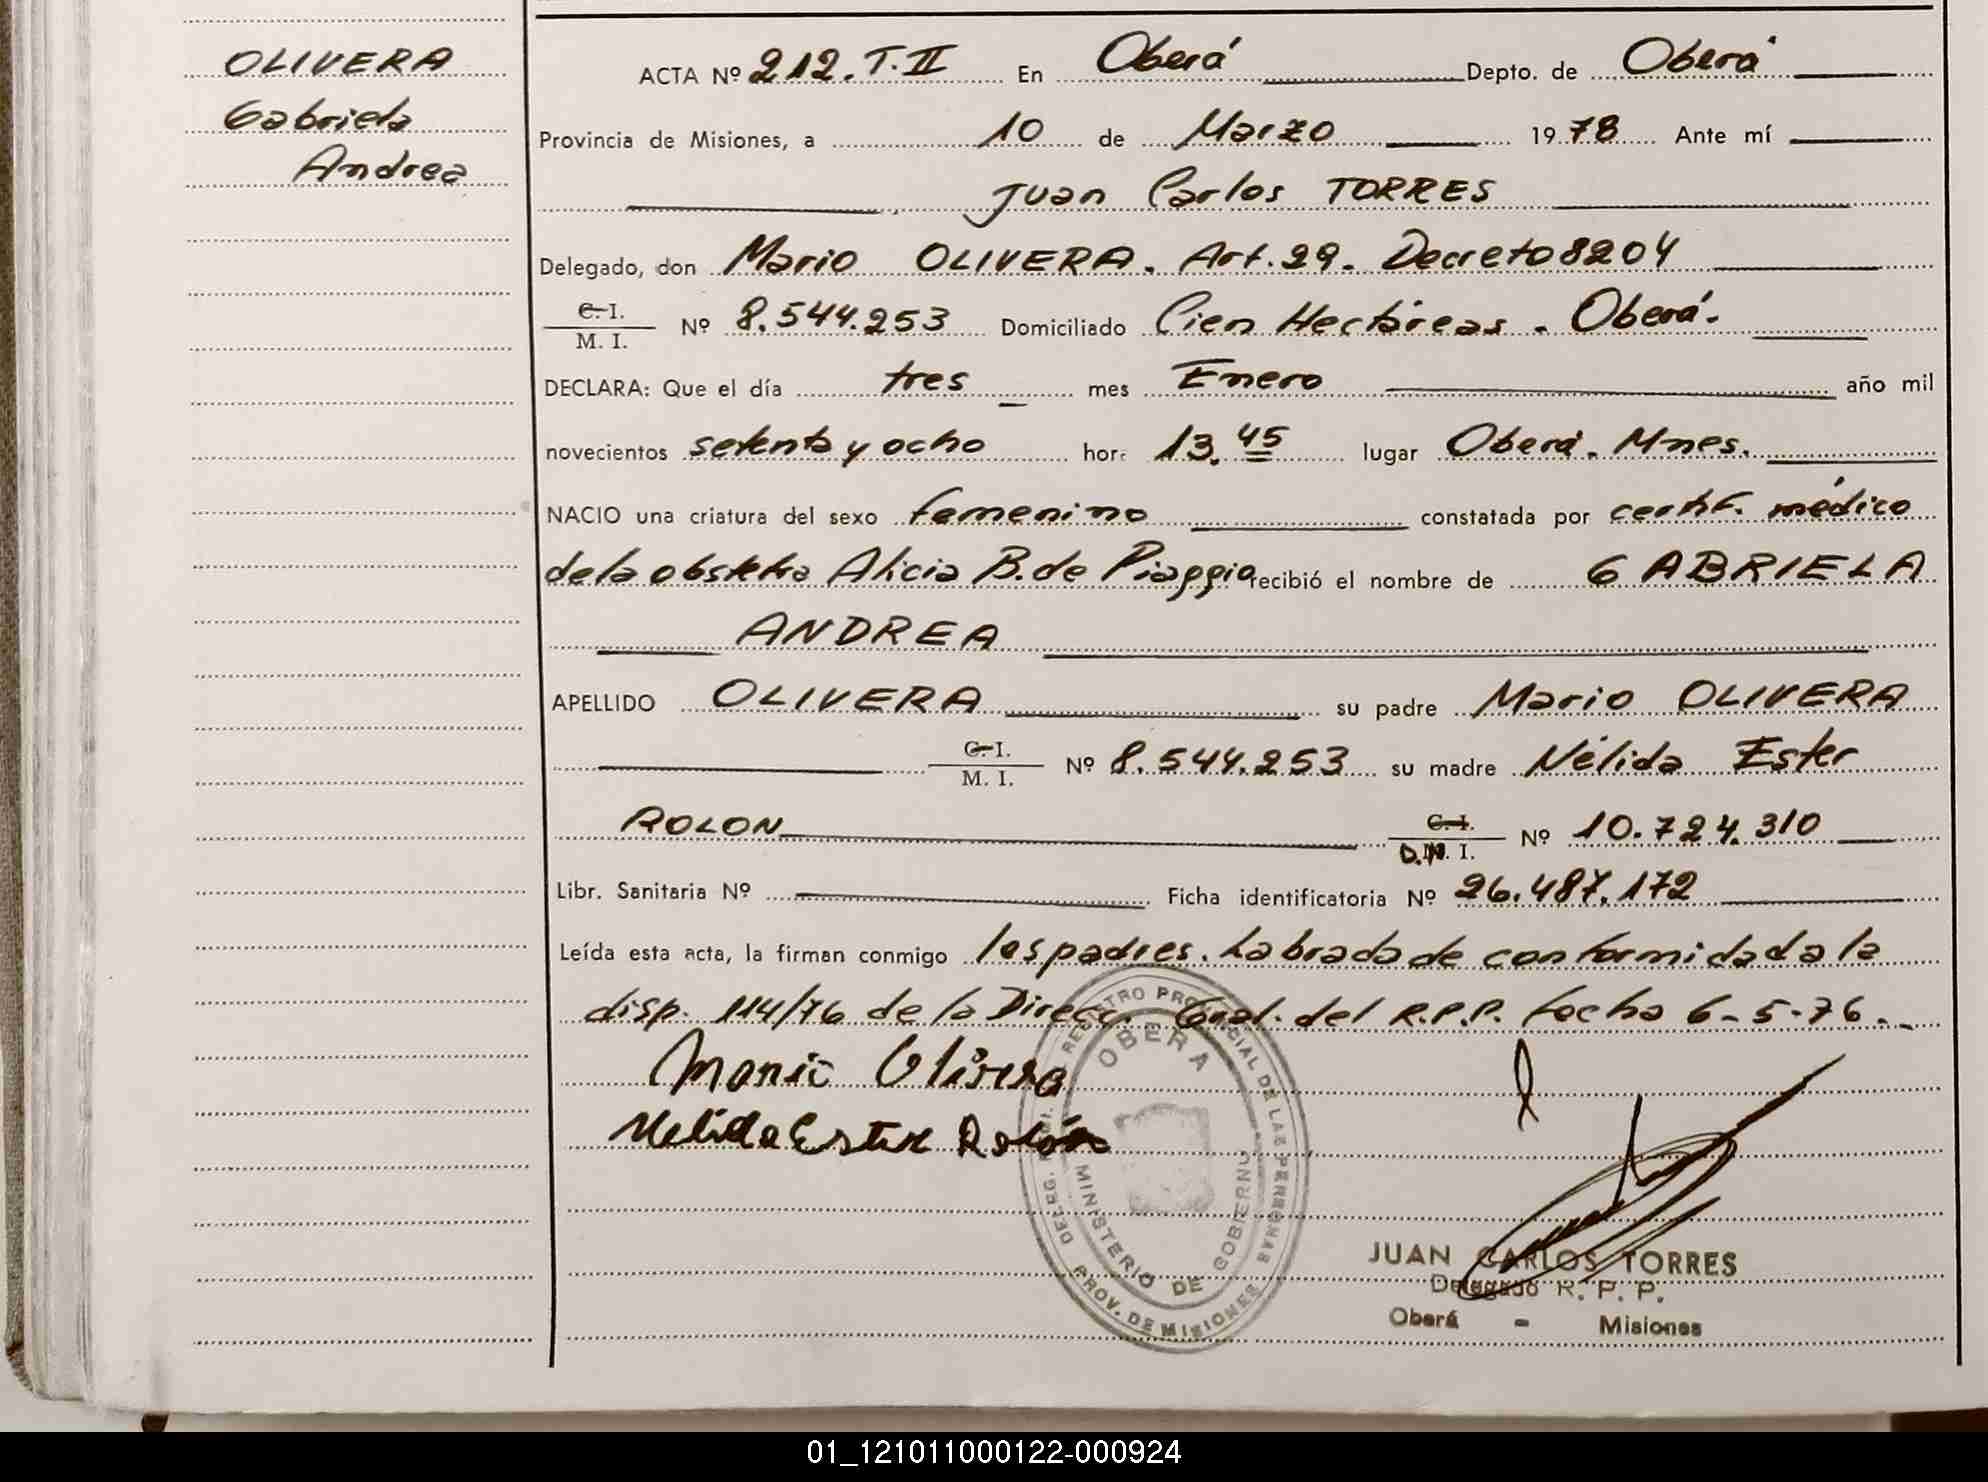 OLIVERA
Gabriela
Andrea
ACTA Nº 212. T. II En Oberá Depto. de Oberá
Provincia de Misiones, a 10 de Marzo 1978 Ante mí
Juan Carlos TORRES
Delegado, don Mario OLIVERA. Art. 29. Decreto 8204
C. I.
M. I. Nº 8.544.253 Domiciliado Cien Hectáreas. Oberá.
DECLARA: Que el día tres mes Enero año mil
novecientos setenta y ocho hor: 13.45 lugar Oberá. Mnes.
NACIO una criatura del sexo femenino constatada por certif. médico
de la obstetra Alicia B. de Piaggio recibió el nombre de GABRIELA
ANDREA
APELLIDO OLIVERA su padre Mario OLIVERA
C. I.
M. I. Nº 8.544.253 su madre Nélida Ester
ROLON C. I.
D.N. I. Nº 10.724.310
Libr. Sanitaria Nº Ficha identificatoria Nº 26.487.172
Leída esta acta, la firman conmigo los padres. Labrada de conformidad a la
disp. 114/76 de la Direcc. Gral. del R.P.P. fecha 6-5-76.
Mario Olivera
Nelida Ester Rolón
REGISTRO PROVINCIAL DE LAS PERSONAS
OBERA
MINISTERIO DE GOBIERNO
PROV. DE MISIONES
JUAN CARLOS TORRES
Delegado R. P. P.
Oberá - Misiones
01_121011000122-000924